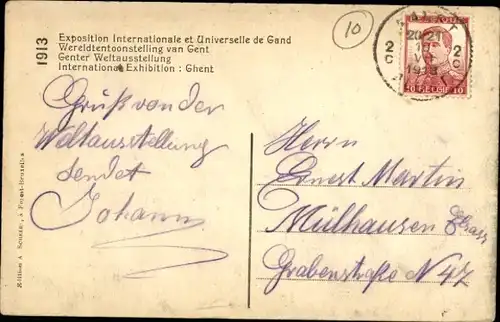 1913
Exposition Internationale et Universelle de Gand
Wereldtentoonstelling van Gent
Genter Weltausstellung
International Exhibition : Ghent
10
20-21
2 2
C C
1913
BELGIE
10 10
Gruß von der
Weltausstellung
sendet
Johann
Herrn
Ernest Martin
Mülhausen Elsass
Grabenstraße N 47